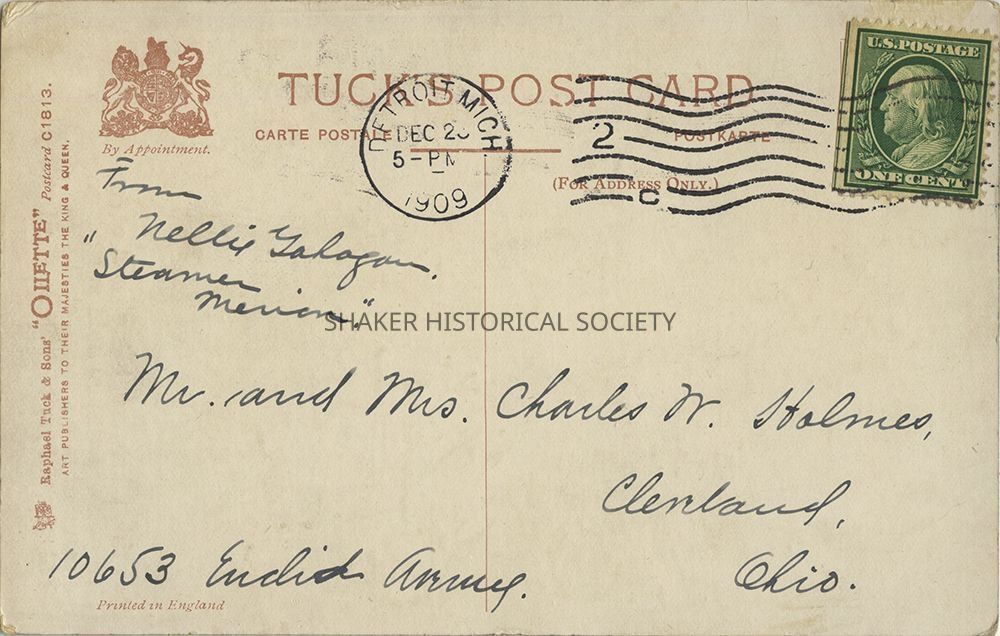 TUCK'S POST CARD
CARTE POSTALE
POSTKARTE
(FOR ADDRESS ONLY.)
By Appointment.
DETROIT, MICH
DEC 2
5-PM
1909
2
C
U.S. POSTAGE
ONE CENT
Raphael Tuck & Sons' "OILETTE" Postcard C1813.
ART PUBLISHERS TO THEIR MAJESTIES THE KING & QUEEN.
From
Nellie Gahagan.
"Steamer
Merion."
SHAKER HISTORICAL SOCIETY
Mr. and Mrs. Charles W. Holmes,
Cleveland,
10653 Euclid Avenue.
Ohio.
Printed in England